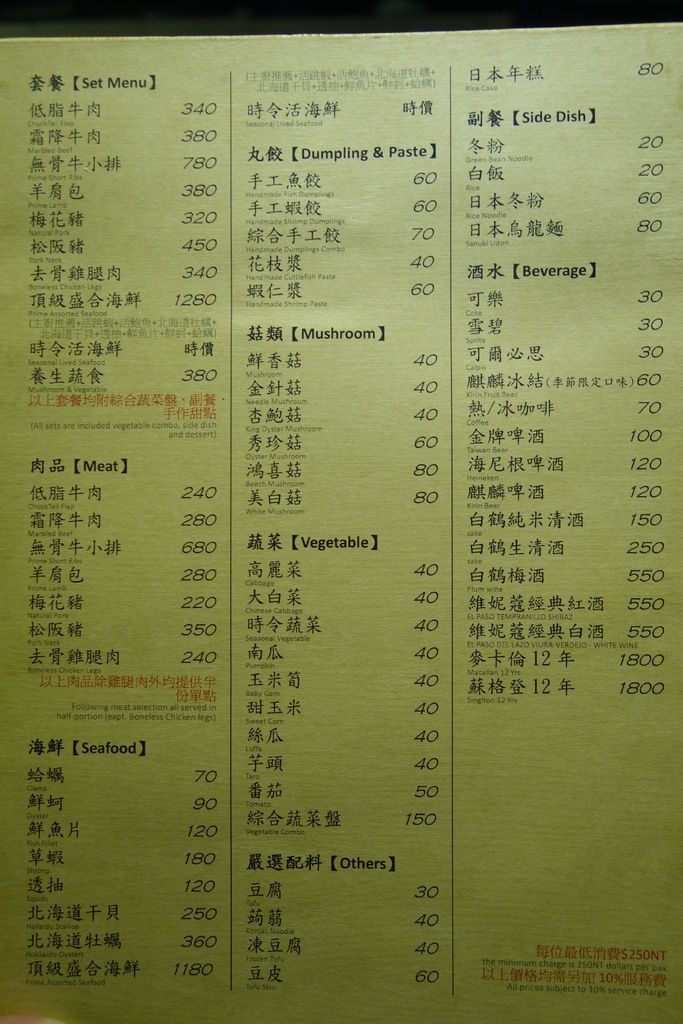 套餐【Set Menu】
低脂牛肉 340
ChuckTail Flap
霜降牛肉 380
Marbled Beef
無骨牛小排 780
Prime Short Ribs
羊肩包 380
Prime Lamb
梅花豬 320
Natural Pork
松阪豬 450
Pork Neck
去骨雞腿肉 340
Boneless Chicken Legs
頂級盛合海鮮 1280
Prime Assorted Seafood
(主廚推薦+活跳蝦+活鮑魚+北海道牡蠣+
北海道干貝+透抽+鮮魚片+鮮蚵+蛤蠣)
時令活海鮮 時價
Seasonal Lived Seafood
養生蔬食 380
Mushroom & Vegetable
以上套餐均附綜合蔬菜盤、副餐、
手作甜點
(All sets are included vegetable combo, side dish
and dessert)
肉品【Meat】
低脂牛肉 240
ChuckTail Flap
霜降牛肉 280
Marbled Beef
無骨牛小排 680
Prime Short Ribs
羊肩包 280
Prime Lamb
梅花豬 220
Natural Pork
松阪豬 350
Pork Neck
去骨雞腿肉 240
Boneless Chicken Legs
以上肉品除雞腿肉外均提供半
份單點
Following meat selection all served in
half-portion (expt. Boneless Chicken legs)
海鮮【Seafood】
蛤蠣 70
Clams
鮮蚵 90
Oyster
鮮魚片 120
Fish Fillet
草蝦 180
Shrimp
透抽 120
Squids
北海道干貝 250
Hollaido Scallop
北海道牡蠣 360
Hokkaido Oysters
頂級盛合海鮮 1180
Prime Assorted Seafood
(主廚推薦+活跳蝦+活鮑魚+北海道牡蠣+
北海道干貝+透抽+鮮魚片+鮮蚵+蛤蠣)
時令活海鮮 時價
Seasonal Lived Seafood
丸餃【Dumpling & Paste】
手工魚餃 60
Handmade Fish Dumplings
手工蝦餃 60
Handmade Shrimp Dumplings
綜合手工餃 70
Handmade Dumplings Combo
花枝漿 40
Handmade Cuttlefish Paste
蝦仁漿 60
Handmade Shrimp Paste
菇類【Mushroom】
鮮香菇 40
Mushroom
金針菇 40
Needle Mushroom
杏鮑菇 40
King Oyster Mushroom
秀珍菇 60
Oyster Mushroom
鴻喜菇 80
Beech Mushroom
美白菇 80
White Mushroom
蔬菜【Vegetable】
高麗菜 40
Cabbage
大白菜 40
Chinese Cabbage
時令蔬菜 40
Seasonal Vegetable
南瓜 40
Pumpkin
玉米筍 40
Baby Corn
甜玉米 40
Sweet Corn
絲瓜 40
Luffa
芋頭 40
Taro
番茄 50
Tomato
綜合蔬菜盤 150
Vegetable Combo
嚴選配料【Others】
豆腐 30
Tofu
蒟蒻 40
Konjac Noodle
凍豆腐 40
Frozen Tofu
豆皮 60
Tofu Skin
日本年糕 80
Rice Cake
副餐【Side Dish】
冬粉 20
Green Bean Noodle
白飯 20
Rice
日本冬粉 60
Rice Noodle
日本烏龍麵 80
Sanuki Udon
酒水【Beverage】
可樂 30
Coke
雪碧 30
Sprite
可爾必思 30
Calpis
麒麟冰結(季節限定口味)60
Kirin Fruit Beer
熱/冰咖啡 70
Coffee
金牌啤酒 100
Taiwan Beer
海尼根啤酒 120
Heineken
麒麟啤酒 120
Kirin Beer
白鶴純米清酒 150
sake
白鶴生清酒 250
sake
白鶴梅酒 550
Plum wine
維妮蔻經典紅酒 550
EL PASO TEMPRANILLO SHIRAZ
維妮蔻經典白酒 550
EL PASO DEL LAZO VIURA-VERDEJO - WHITE WINE
麥卡倫 12 年 1800
Macallan 12 Yrs
蘇格登 12 年 1800
Singlton 12 Yrs
每位最低消費$250NT
the minimum charge is 250NT dollars per pax
以上價格均需另加 10%服務費
All prices subject to 10% service charge